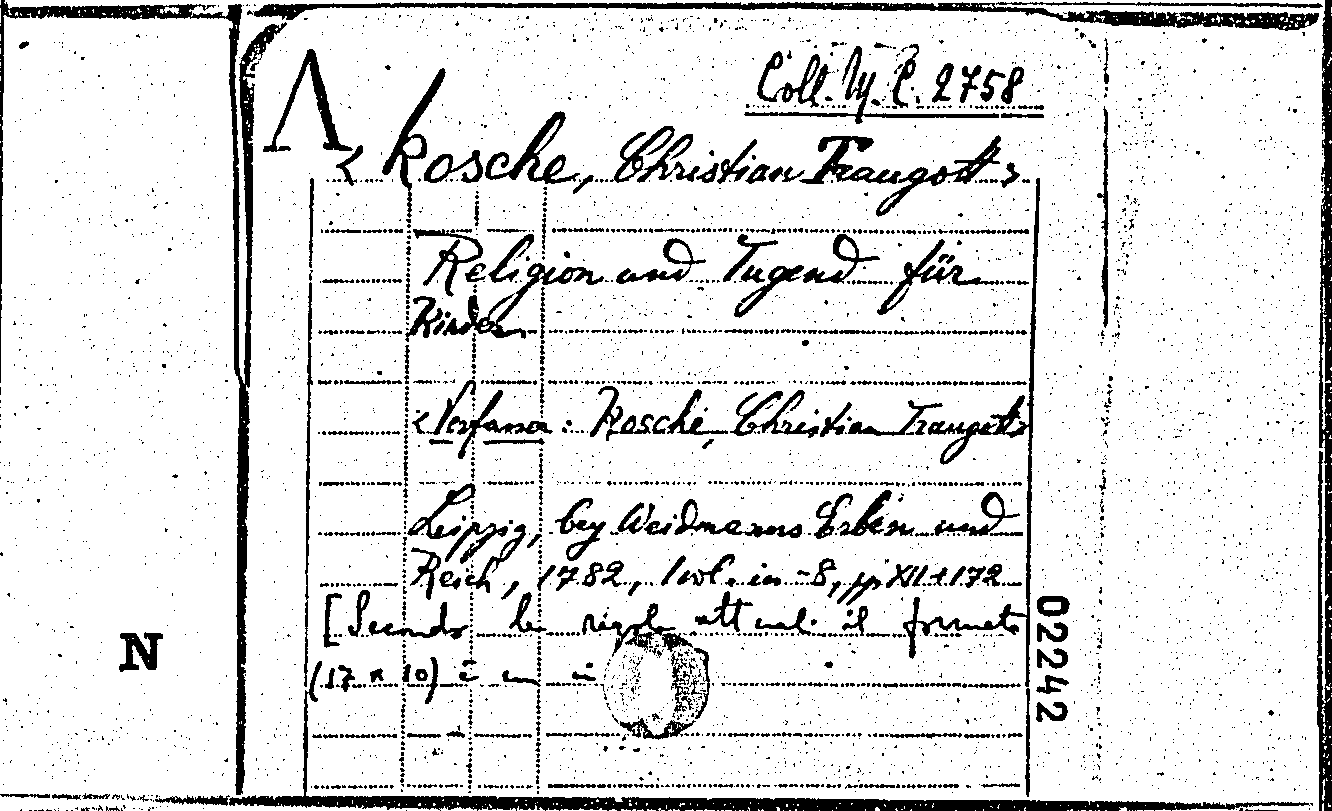 Coll. M. C. 2758
Λ
< Kosche, Christian Traugott >
Religion und Tugend für
Kinder
< Verfasser : Kosche, Christian Traugott >
Leipzig, bey Weidmanns Erben und
Reich, 1782, 1 vol. in -8, pp XII+172
[Secondo le regole attuali il formato
(17 x 10) è un in
N
02242